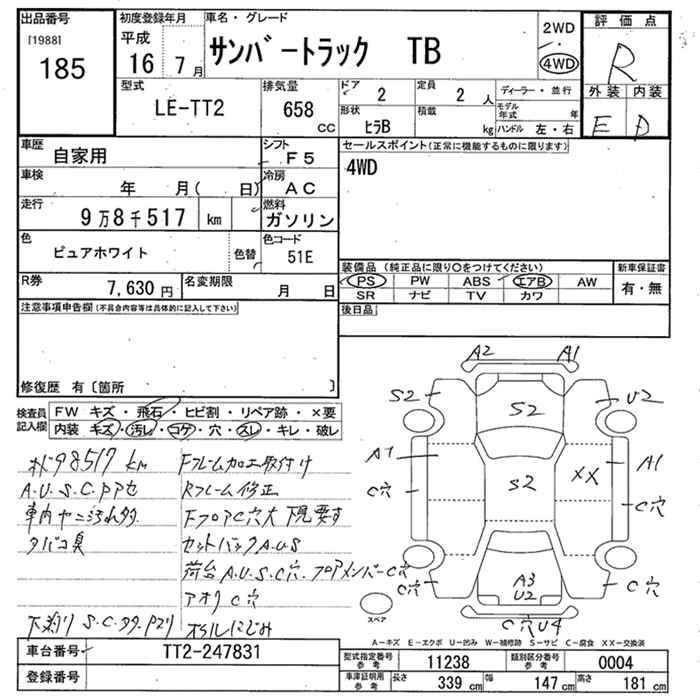 出品番号
[1988]
185
初度登録年月
平成
16 7月
車名・グレード
サンバートラック TB
2WD
4WD
評価点
R
外装 内装
E D
型式
LE-TT2
排気量
658 CC
ドア
2
定員
2 人
形状
ヒラB
積載
kg
ディーラー・並行
モデル年式 年
ハンドル 左・右
車歴
自家用
シフト
F5
車検
年 月( 日)
冷房
AC
走行
9万8千517 km
燃料
ガソリン
色
ピュアホワイト
色替
色コード
51E
R券
7,630 円
名変期限
月 日
セールスポイント(正常に機能するものに限ります)
4WD
装備品(純正品に限り○をつけてください)
PS PW ABS エアB AW
SR ナビ TV カワ
新車保証書
有・無
後日品
注意事項申告欄(不具合内容等は具体的に記入して下さい)
修復歴 有〔箇所 〕
検査員記入欄
FW キズ・飛石・ヒビ割・リペア跡・×要
内装 キズ・汚れ・コゲ・穴・スレ・キレ・破レ
98517 km
A.U.S.C.PPセ
車内ヤニ汚れ多
タバコ臭
下廻り S.C.
Fフレーム加工取付け
Rフレーム修正
FフロアC穴大 下見要す
セットバックA.U.S
荷台 A.U.S.C穴.フロアメンバーC穴
アオリC穴
オイルにじみ
A2 A1
S2 S2 U2
A1 S2 XX A1
C穴 C穴
A3
U2
C穴 C穴
C穴 U4
スペア
A-キズ E-エクボ U-凹み W-補修跡 S-サビ C-腐食 XX-交換済
車台番号
TT2-247831
登録番号
型式指定番号 参考
11238
類別区分番号 参考
0004
車庫証明用 参考
長さ 339 cm 幅 147 cm 高さ 181 cm